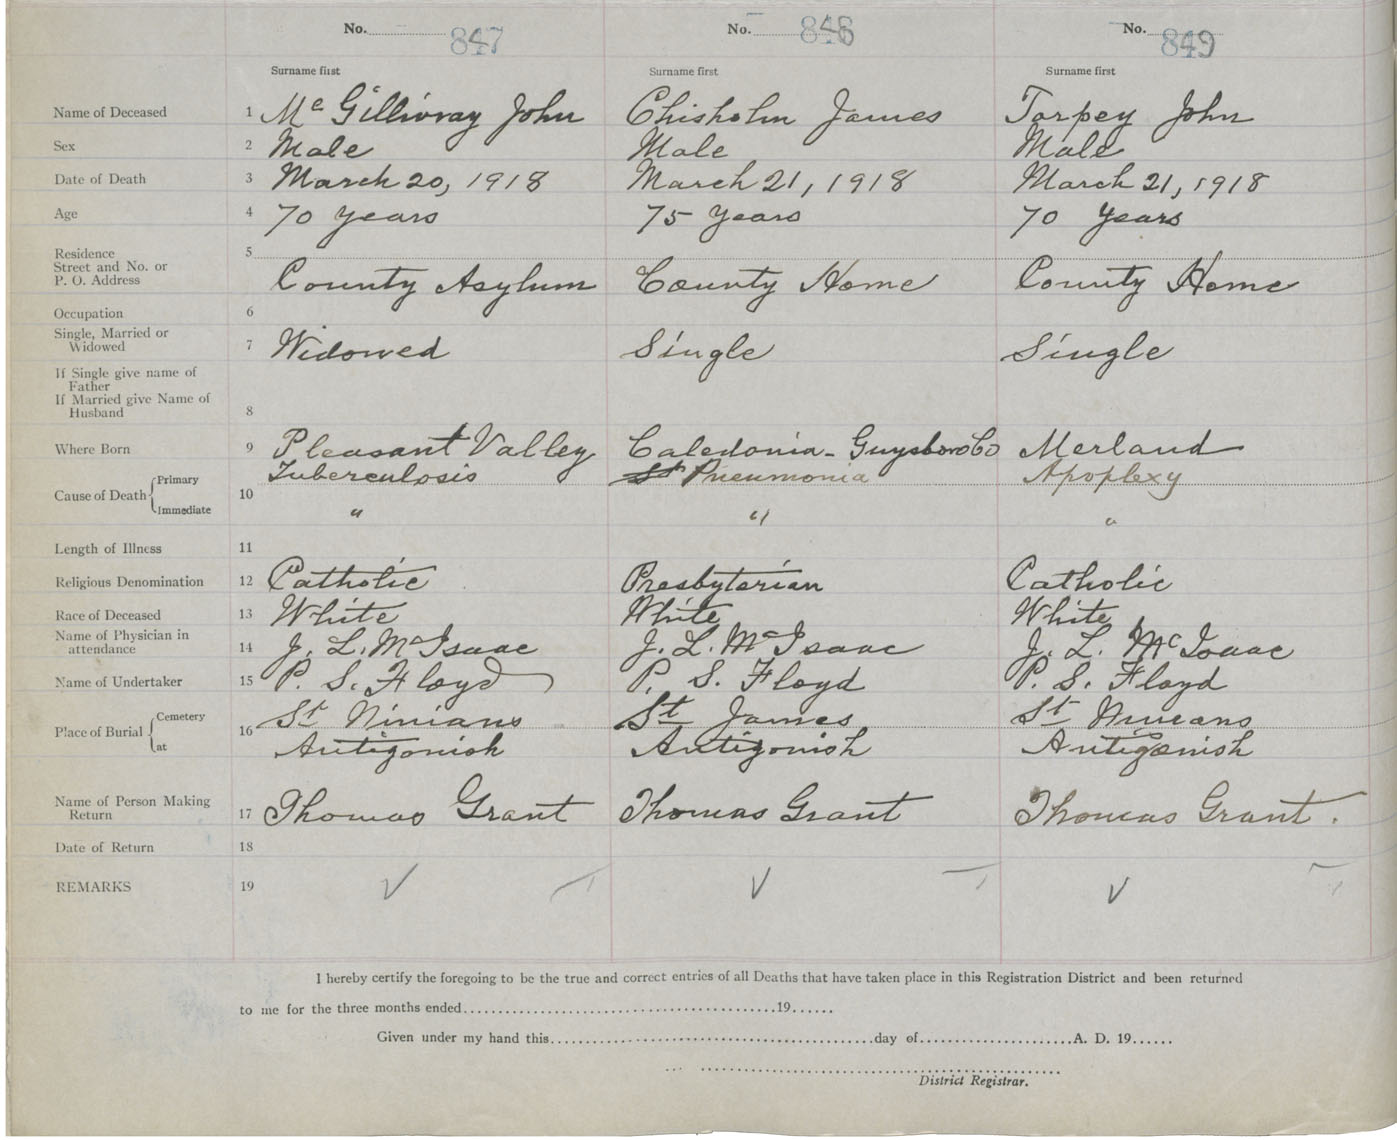 No. 847 No. 848 No. 849
Surname first Surname first Surname first
Name of Deceased 1 McGillivray John Chisholm James Torpey John
Sex 2 Male Male Male
Date of Death 3 March 20, 1918 March 21, 1918 March 21, 1918
Age 4 70 years 75 years 70 years
Residence 5
Street and No. or
P. O. Address County Asylum County Home County Home
Occupation 6
Single, Married or
Widowed 7 Widowed Single Single
If Single give name of
Father
If Married give Name of
Husband 8
Where Born 9 Pleasant Valley Caledonia - Guysboro Co Merland
Cause of Death Primary Tuberculosis St Pneumonia Apoplexy
10
Immediate " " "
Length of Illness 11
Religious Denomination 12 Catholic Presbyterian Catholic
Race of Deceased 13 White White White
Name of Physician in
attendance 14 J. L. McIsaac J. L. McIsaac J. L. McIsaac
Name of Undertaker 15 P. S. Floyd P. S. Floyd P. S. Floyd
Place of Burial Cemetery 16 St Ninians St James St Ninians
at Antigonish Antigonish Antigonish
Name of Person Making
Return 17 Thomas Grant Thomas Grant Thomas Grant.
Date of Return 18
REMARKS 19 ✓ ✓ ✓
I hereby certify the foregoing to be the true and correct entries of all Deaths that have taken place in this Registration District and been returned
to me for the three months ended..........19......
Given under my hand this..........day of..........A. D. 19......
District Registrar.